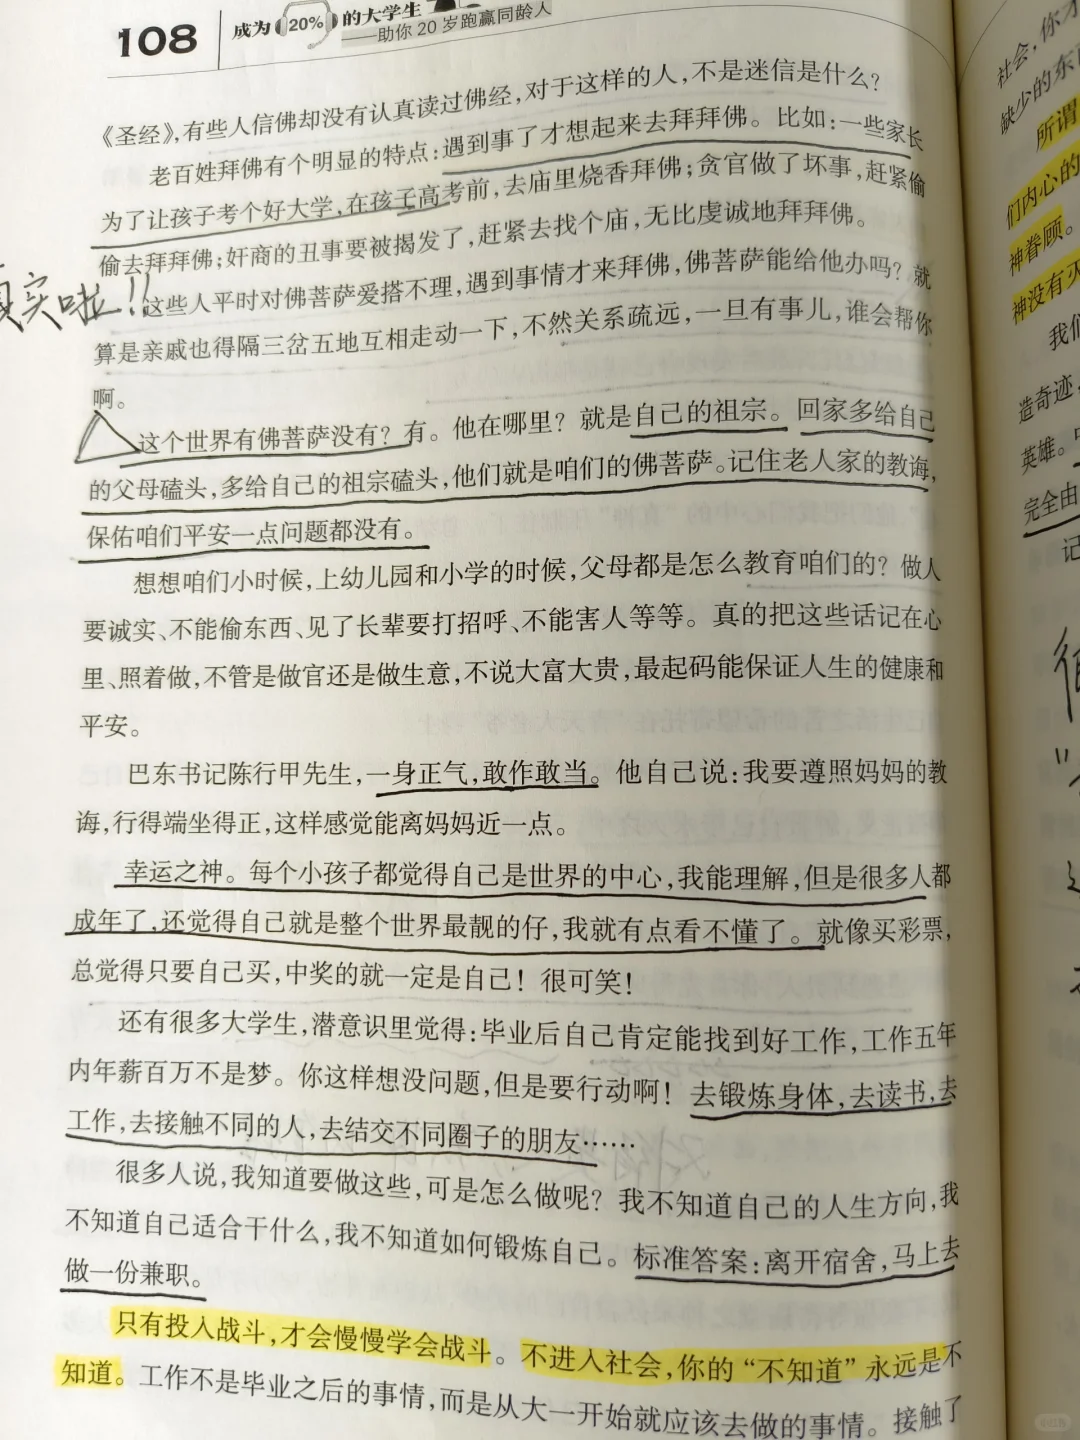 108
成为20%的大学生
——助你20岁跑赢同龄人
《圣经》,有些人信佛却没有认真读过佛经,对于这样的人,不是迷信是什么?
老百姓拜佛有个明显的特点:遇到事了才想起来去拜拜佛。比如:一些家长
为了让孩子考个好大学,在孩子高考前,去庙里烧香拜佛;贪官做了坏事,赶紧偷
偷去拜拜佛;奸商的丑事要被揭发了,赶紧去找个庙,无比虔诚地拜拜佛。
这些人平时对佛菩萨爱搭不理,遇到事情才来拜佛,佛菩萨能给他办吗?就
算是亲戚也得隔三岔五地互相走动一下,不然关系疏远,一旦有事儿,谁会帮你
啊。
这个世界有佛菩萨没有?有。他在哪里?就是自己的祖宗。回家多给自己
的父母磕头,多给自己的祖宗磕头,他们就是咱们的佛菩萨。记住老人家的教诲,
保佑咱们平安一点问题都没有。
想想咱们小时候,上幼儿园和小学的时候,父母都是怎么教育咱们的?做人
要诚实、不能偷东西、见了长辈要打招呼、不能害人等等。真的把这些话记在心
里、照着做,不管是做官还是做生意,不说大富大贵,最起码能保证人生的健康和
平安。
巴东书记陈行甲先生,一身正气,敢作敢当。他自己说:我要遵照妈妈的教
诲,行得端坐得正,这样感觉能离妈妈近一点。
幸运之神。每个小孩子都觉得自己是世界的中心,我能理解,但是很多人都
成年了,还觉得自己就是整个世界最靓的仔,我就有点看不懂了。就像买彩票,
总觉得只要自己买,中奖的就一定是自己!很可笑!
还有很多大学生,潜意识里觉得:毕业后自己肯定能找到好工作,工作五年
内年薪百万不是梦。你这样想没问题,但是要行动啊!去锻炼身体,去读书,去
工作,去接触不同的人,去结交不同圈子的朋友……
很多人说,我知道要做这些,可是怎么做呢?我不知道自己的人生方向,我
不知道自己适合干什么,我不知道如何锻炼自己。标准答案:离开宿舍,马上去
做一份兼职。
只有投入战斗,才会慢慢学会战斗。不进入社会,你的“不知道”永远是不
知道。工作不是毕业之后的事情,而是从大一开始就应该去做的事情。接触了
真实啦!!
社会,你才
缺少的东
所谓
们内心的
神眷顾。
神没有灭
我们
造奇迹,
英雄。
完全由
记